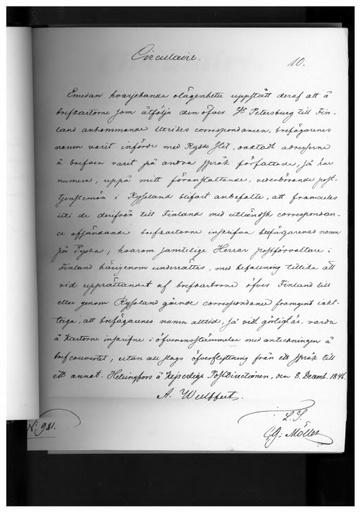 Circulaire.
10.
Emedan hvarjehanda olägenheter uppstått deraf att å
brefkartorne som åtfölja den öfver St Petersburg till Fin-
land ankommande utrikes correspondancen, brefägarenes
namn varit införde med Ryska stil, oaktadt adresserne
å brefven varit på andra språk författade; så har
numera, uppå mitt föranstaltande, vederbörande post-
Contoir i Ryssland blifvit anbefalte, att framdeles
uti de derifrån till Finland med utländsk correspondan-
ce afgående brefkartorne inskrifva brefägarenes namn
på Tyska, hvarom samtlige Herrar postförvaltare i
Finland härigenom underrättas, med befallning tillika att
vid upprättandet af brefkartorne öfver Finland till
eller genom Ryssland gående correspondance framgent iakt-
taga, att brefägarenes namn alltid, så vid görligt är, varda
i kartorne införde i öfverensstämmelse med anteckningen å
brefcouvertet, utan all slags öfversättning från ett språk till
ett annat. Helsingfors å Kejserliga Post Directionen, den 8. Decemb. 1846.
A. Wulffert.
L.S.
G: Möller
N: 981.